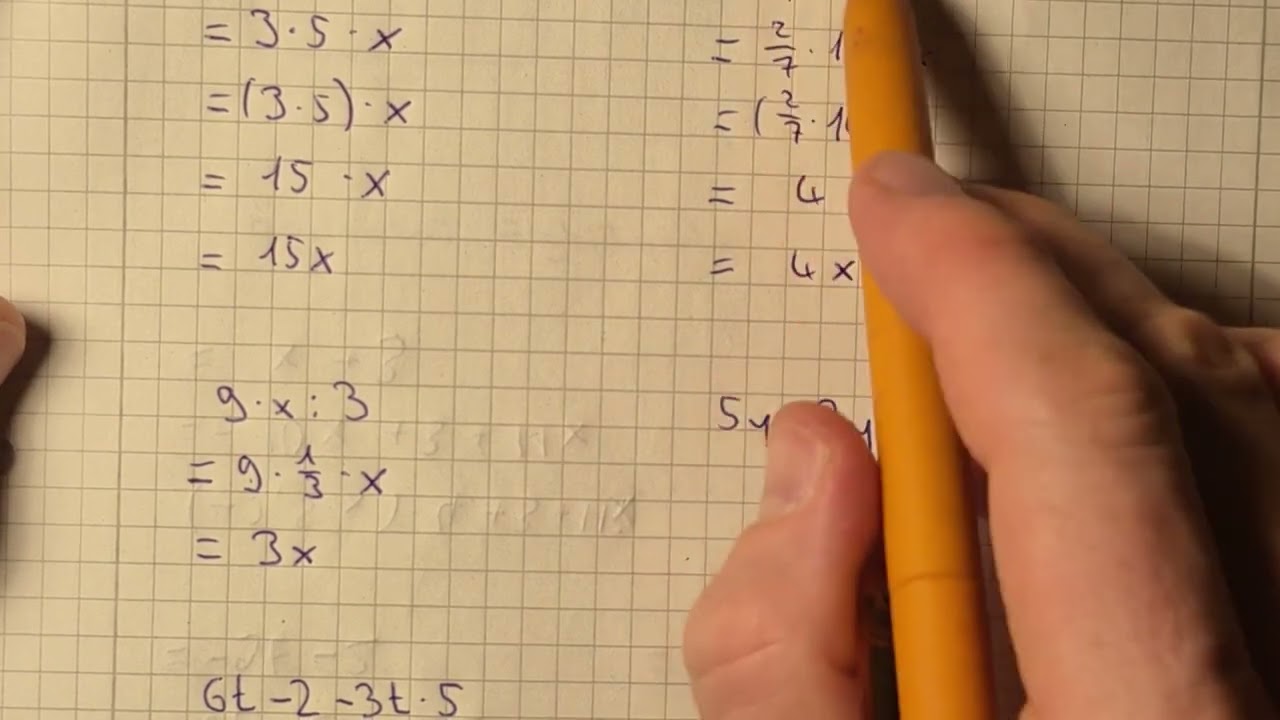 = 3·5 · x
= (3·5) · x
= 15 · x
= 15x
9·x : 3
= 9 · 1/3 · x
= 3x
6t - 2 - 3t · 5
= 2/7 · 1
= ( 2/7 · 1
= 4
= 4x
5y